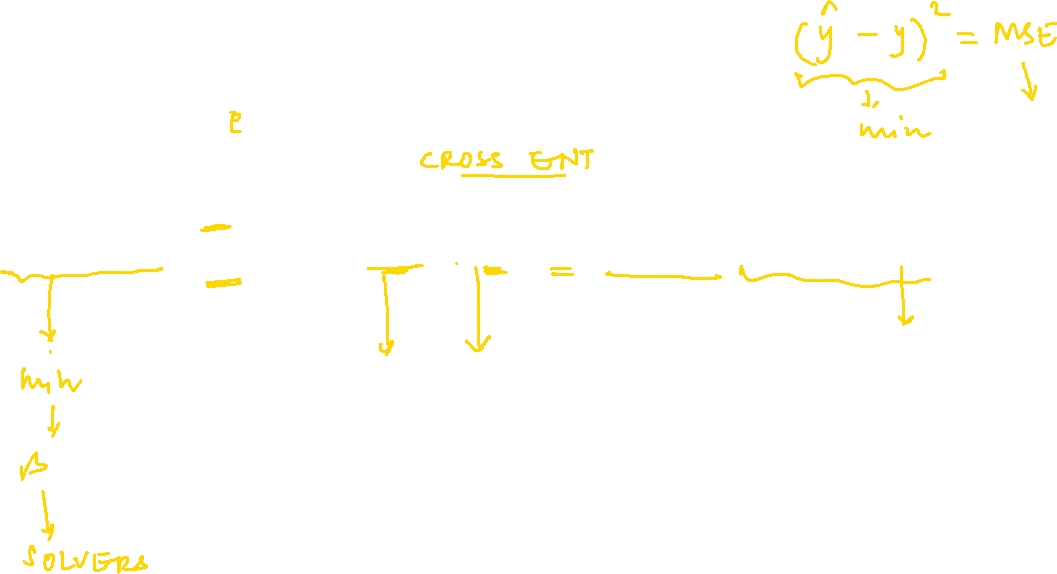 (ŷ - y)² = MSE
min
e
CROSS ENT
=
min
β
SOLVERS